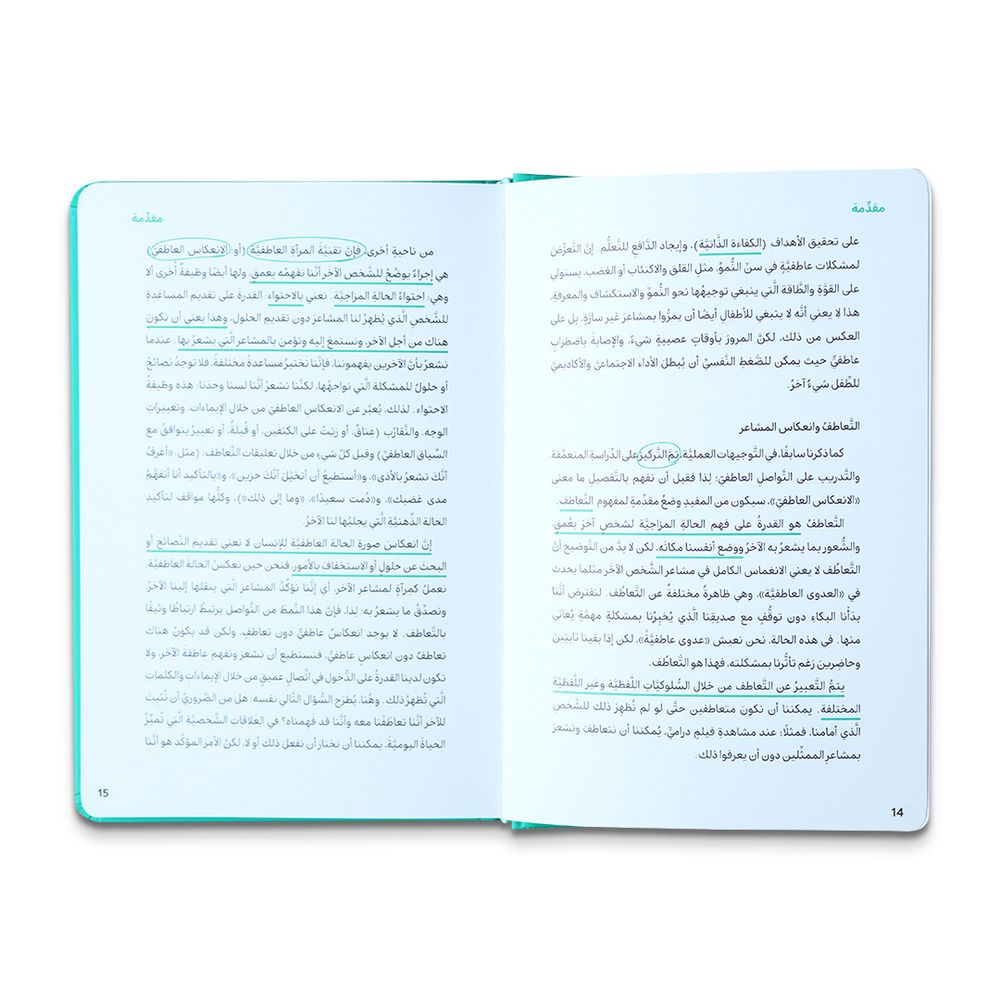 مقدِّمة
على تحقيق الأهداف (الكفاءة الذَّاتيَّة)، وإيجاد الدَّافع للتَّعلُّم. إنَّ التَّعرُّضَ
لمشكلات عاطفيَّة في سنِّ النُّموِّ، مثل القلق والاكتئاب أو الغضب، يستولي
على القوَّة والطَّاقة الَّتي ينبغي توجيهُها نحو النُّموِّ والاستكشاف والمعرفة.
هذا لا يعني أنَّه لا ينبغي للأطفال أيضًا أن يمرُّوا بمشاعر غير سارَّةٍ، بل على
العكس من ذلك. لكنَّ المرورَ بأوقاتٍ عصيبةٍ شيءٌ، والإصابة باضطرابٍ
عاطفيٍّ حيث يمكن للضَّغطِ النَّفسيِّ أن يُبطل الأداء الاجتماعيَّ والأكاديميَّ
للطِّفل شيءٌ آخرُ.
التَّعاطفُ وانعكاس المشاعر
كما ذكرنا سابقًا، في التَّوجيهات العمليَّة، تمَّ التَّركيز على الدِّراسةِ المتعمِّقة
والتَّدريب على التَّواصل العاطفيّ؛ لِذا فقبل أن نفهم بالتَّفصيل ما معنى
«الانعكاس العاطفيّ»، سيكون من المفيد وضعُ مقدِّمةٍ لمفهوم التَّعاطف.
التَّعاطفُ هو القدرةُ على فهم الحالةِ المزاجيَّة لشخصٍ آخرَ بعُمقٍ،
والشُّعور بما يشعرُ به الآخرُ ووضع أنفسنا مكانَه، لكن لا بدَّ من التَّوضيح أنَّ
التَّعاطُفَ لا يعني الانغماس الكامل في مشاعر الشَّخص الآخر مثلما يحدث
في «العدوى العاطفيَّة»، وهي ظاهرةٌ مختلفةٌ عن التَّعاطُف. لنفترضَ أنَّنا
بدَأنا البكاء دون توقُّفٍ مع صديقِنا الَّذي يُخبِرُنا بمشكلةٍ مهمَّةٍ يُعاني
منها. في هذه الحالة، نحن نعيش «عدوى عاطفيَّةً»، لكن إذا بقينا ثابتِينَ
وحاضِرينَ رَغم تأثُّرنا بمشكلته، فهذا هو التَّعاطُف.
يتمُّ التَّعبيرُ عن التَّعاطف من خلال السُّلوكيَّاتِ اللَّفظيَّة وغير اللَّفظيَّة
المختلفة. يمكننا أن نكونَ متعاطفين حتَّى لو لم نُظهِرْ ذلك للشَّخص
الَّذي أمامنا، فمثلًا: عند مشاهدةِ فيلمٍ دراميٍّ، يُمكننا أن نتعاطفَ ونشعر
بمشاعرِ الممثِّلين دون أن يعرفوا ذلك.
14
مقدِّمة
من ناحيةٍ أخرى فإنَّ تقنيَّةَ المرآة العاطفيَّة (أو الانعكاس العاطفيّ)
هي إجراءٌ يوضّحُ للشَّخص الآخر أنَّنا نفهمُه بعمقٍ، ولها أيضًا وظيفةٌ أخرى ألا
وهي: احتواءُ الحالةِ المزاجيَّة. نعني بالاحتواء: القدرة على تقديم المساعدة
للشَّخصِ الَّذي يُظهِرُ لنا المشاعرَ دون تقديم الحلول. وهذا يعني أن نكون
هناك من أجل الآخر، ونستمع إليه ونؤمن بالمشاعر الَّتي يشعرُ بها. عندما
نشعرُ بأنَّ الآخرين يفهموننا، فإنَّنا نختبرُ مساعدةً مختلفةً، فلا توجدُ نصائحُ
أو حلولٌ للمشكلة الَّتي نواجهُها، لكنَّنا نشعرُ أنَّنا لسنا وحدَنا: هذه وظيفةُ
الاحتواء. لذلك، يُعبَّر عن الانعكاس العاطفيّ من خلال الإيماءات، وتعبيرات
الوجه، والتَّقارُب (عناقٌ، أو رَبتٌ على الكتفين، أو قُبلةٌ، أو تعبيرٌ يتوافقُ مع
السِّياق العاطفيّ) وقبل كلّ شيءٍ من خلال تعليقات التَّعاطف: (مثل: «أعرفُ
أنَّكَ تشعرُ بالأذى»، و«أستطيعُ أن أتخيَّل أنَّكَ حزين»، و«بالتأكيد أنا أتفهَّمُ
مدى غضبك»، و«دُمت سعيدًا»، «وما إلى ذلك»)، وكلُّها مواقف لتأكيد
الحالة الذِّهنيَّة الَّتي يجلبُها لنا الآخرُ.
إنَّ انعكاسَ صورةِ الحالة العاطفيَّة للإنسان لا تعني تقديمَ النَّصائح أو
البحثَ عن حلولٍ أو الاستخفافَ بالأمور، فنحن حين نعكسُ الحالةَ العاطفيَّة،
نعملُ كمرآةٍ لمشاعر الآخر، أي إنَّنا نؤكّدُ المشاعرَ الَّتي ينقلها إلينا الآخرُ
ونصدّقُ ما يشعرُ به؛ لِذا، فإنَّ هذا النَّمطَ من التَّواصل يرتبطُ ارتباطًا وثيقًا
بالتَّعاطُف. لا يوجد انعكاسٌ عاطفيٌّ دون تعاطفٍ، ولكن قد يكونُ هناك
تعاطفٌ دون انعكاسٍ عاطفيٍّ، فنستطيع أن نشعرَ ونفهمَ عاطفةَ الآخر، ولا
تكون لدينا القدرةُ على الدُّخول في اتّصالٍ عميقٍ من خلال الإيماءات والكلماتِ
الَّتي تُظهرُ ذلك. وهُنا، يُطرَح السُّؤال التَّالي نفسه: هل من الضَّروريّ أن نُثبِتَ
للآخر أنَّنا تعاطفْنا معه وأنَّنا قد فهمناه؟ في العلاقات الشخصيَّةِ الَّتي تميِّزُ
الحياة اليوميَّة، يمكننا أن نختارَ أن نفعل ذلك أو لا، لكنَّ الأمرَ المؤكَّد هو أنَّنا
15